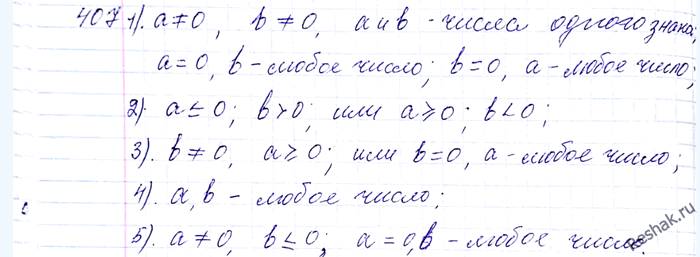 407 1). a ≠ 0, b ≠ 0, a и b - числа одного знака;
a = 0, b - любое число; b = 0, a - любое число;
2) a ≤ 0; b > 0; или a ≥ 0; b < 0;
3). b ≠ 0, a ≥ 0; или b = 0, a - любое число;
4). a, b - любое число;
5). a ≠ 0, b ≤ 0; a = 0, b - любое число.
Reshak.ru